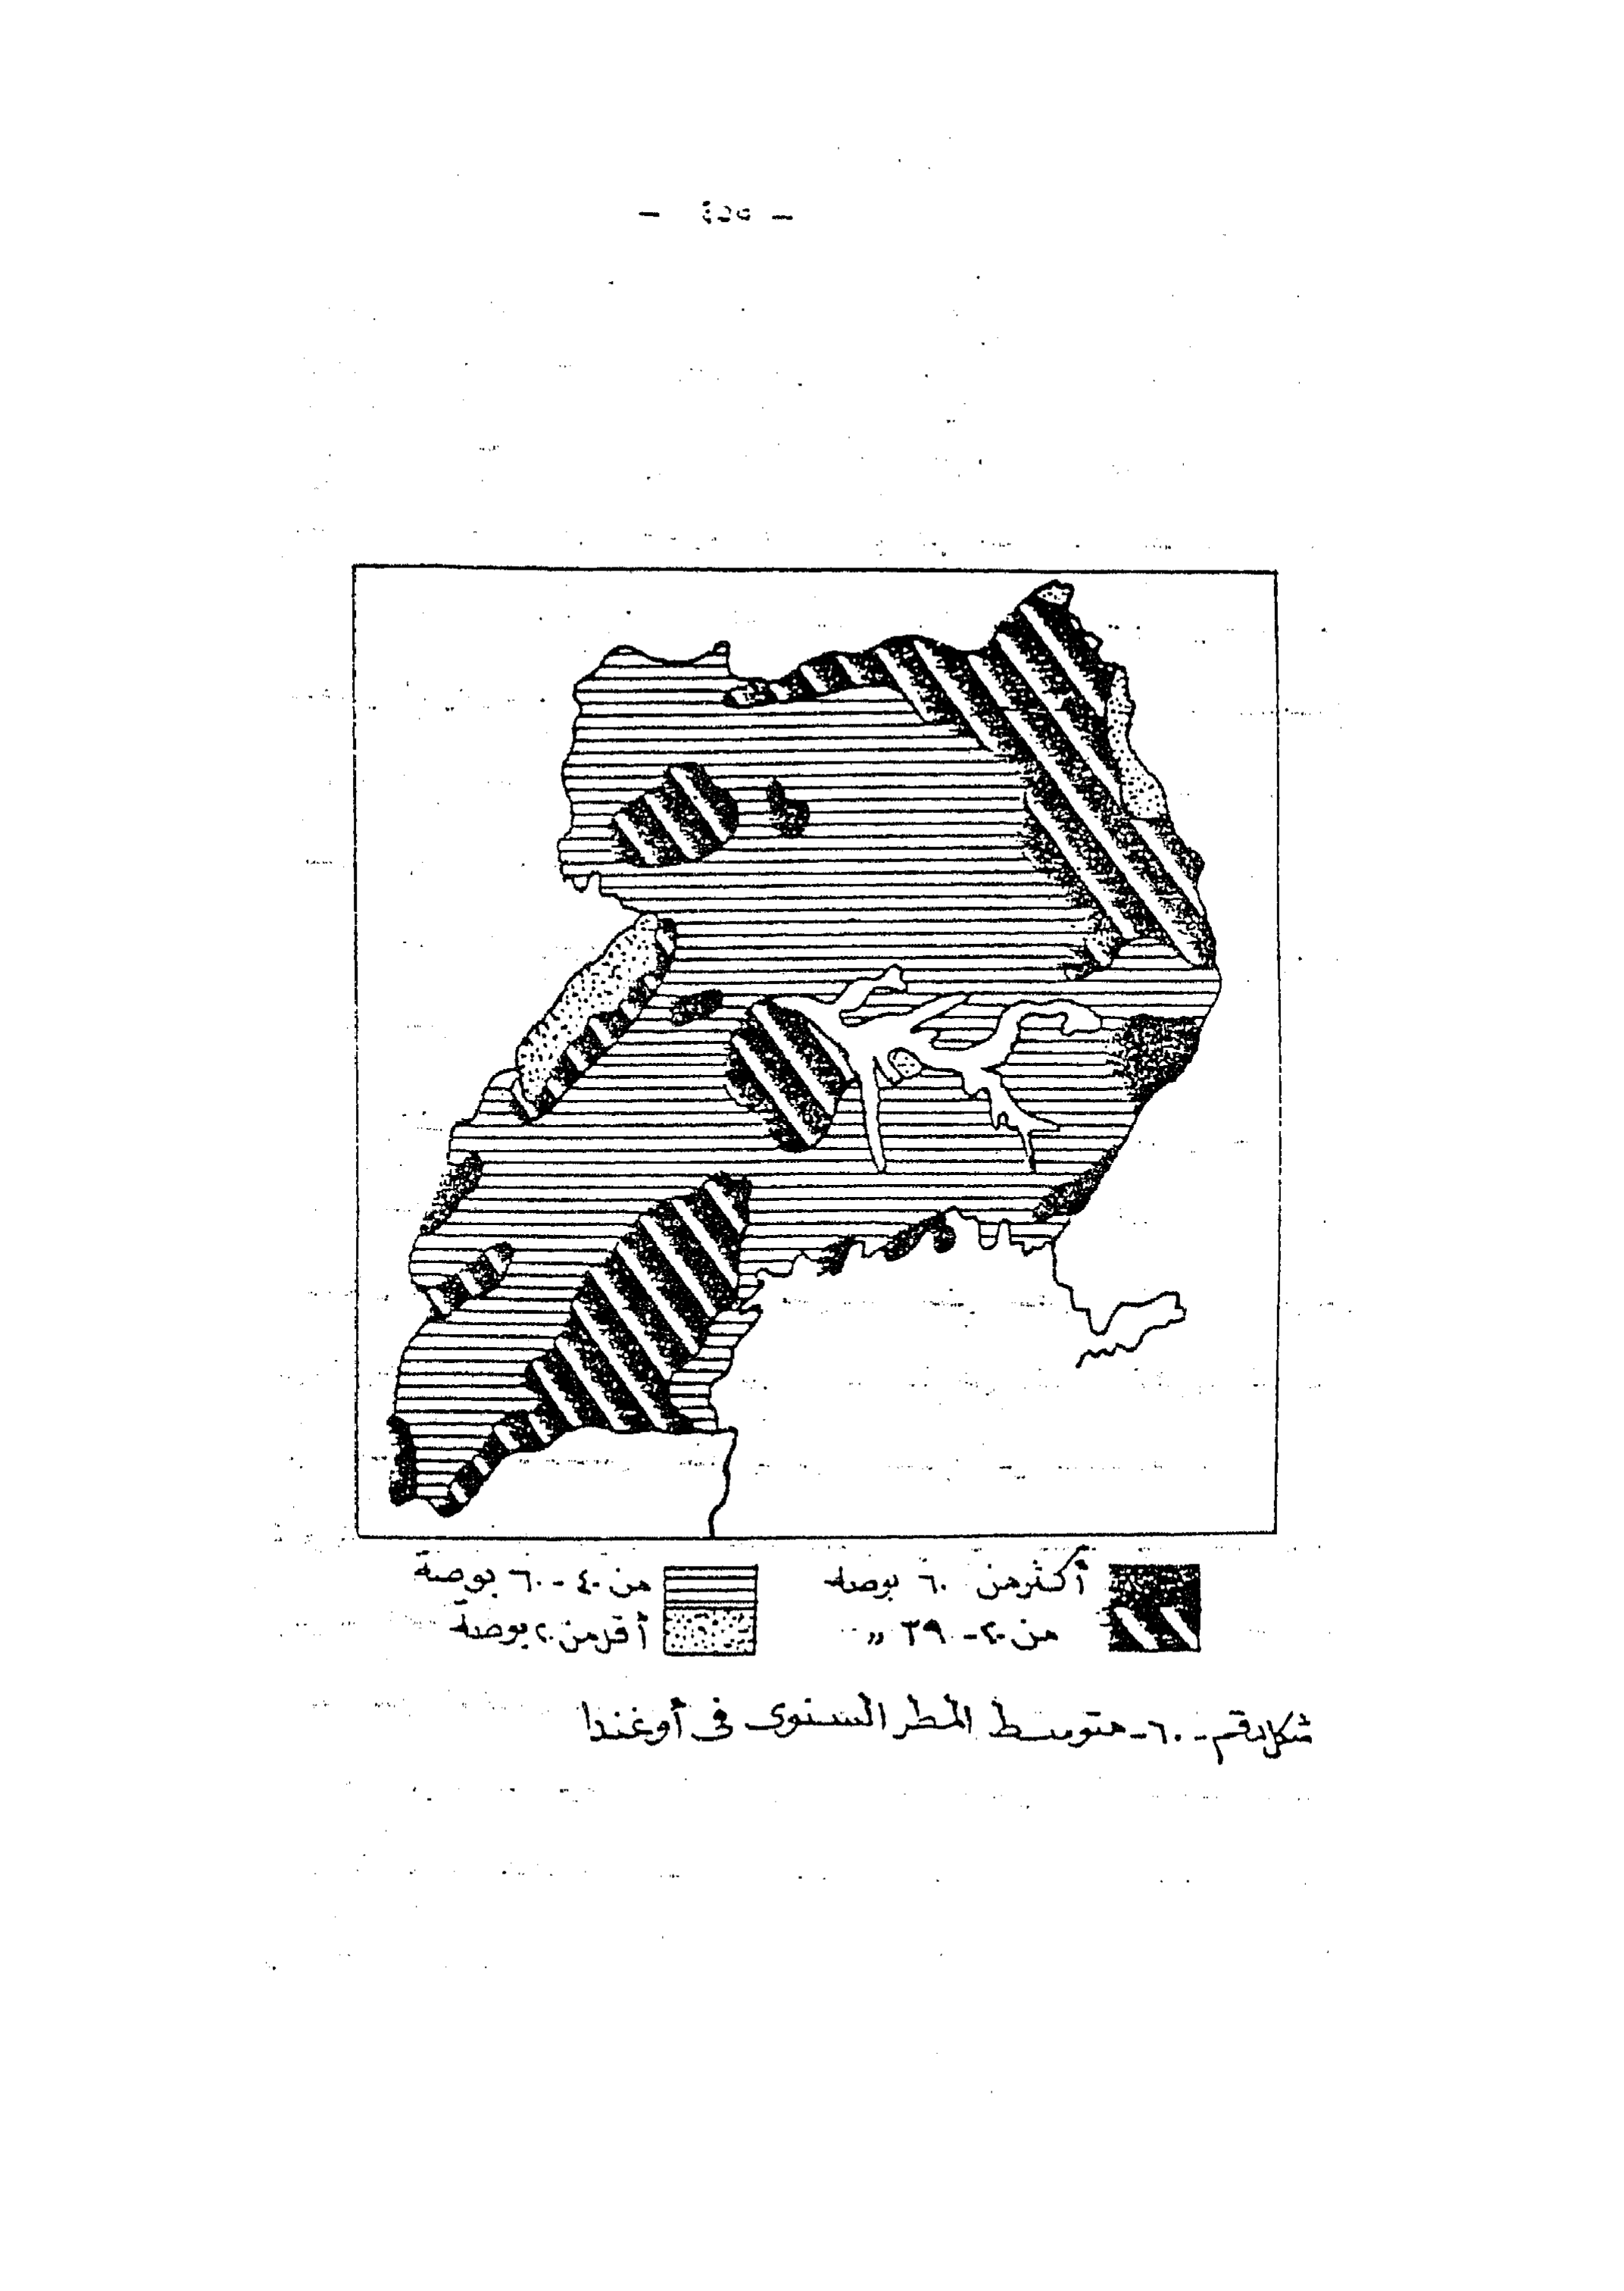 - ٤٥٩ -
أكثر من ٦٠ بوصة
من ٤٠ - ٦٠ بوصة
من ٢٠ - ٣٩ "
أقل من ٢٠ بوصة
شكل رقم - ٦٠ - متوسط المطر السنوى فى أوغندا